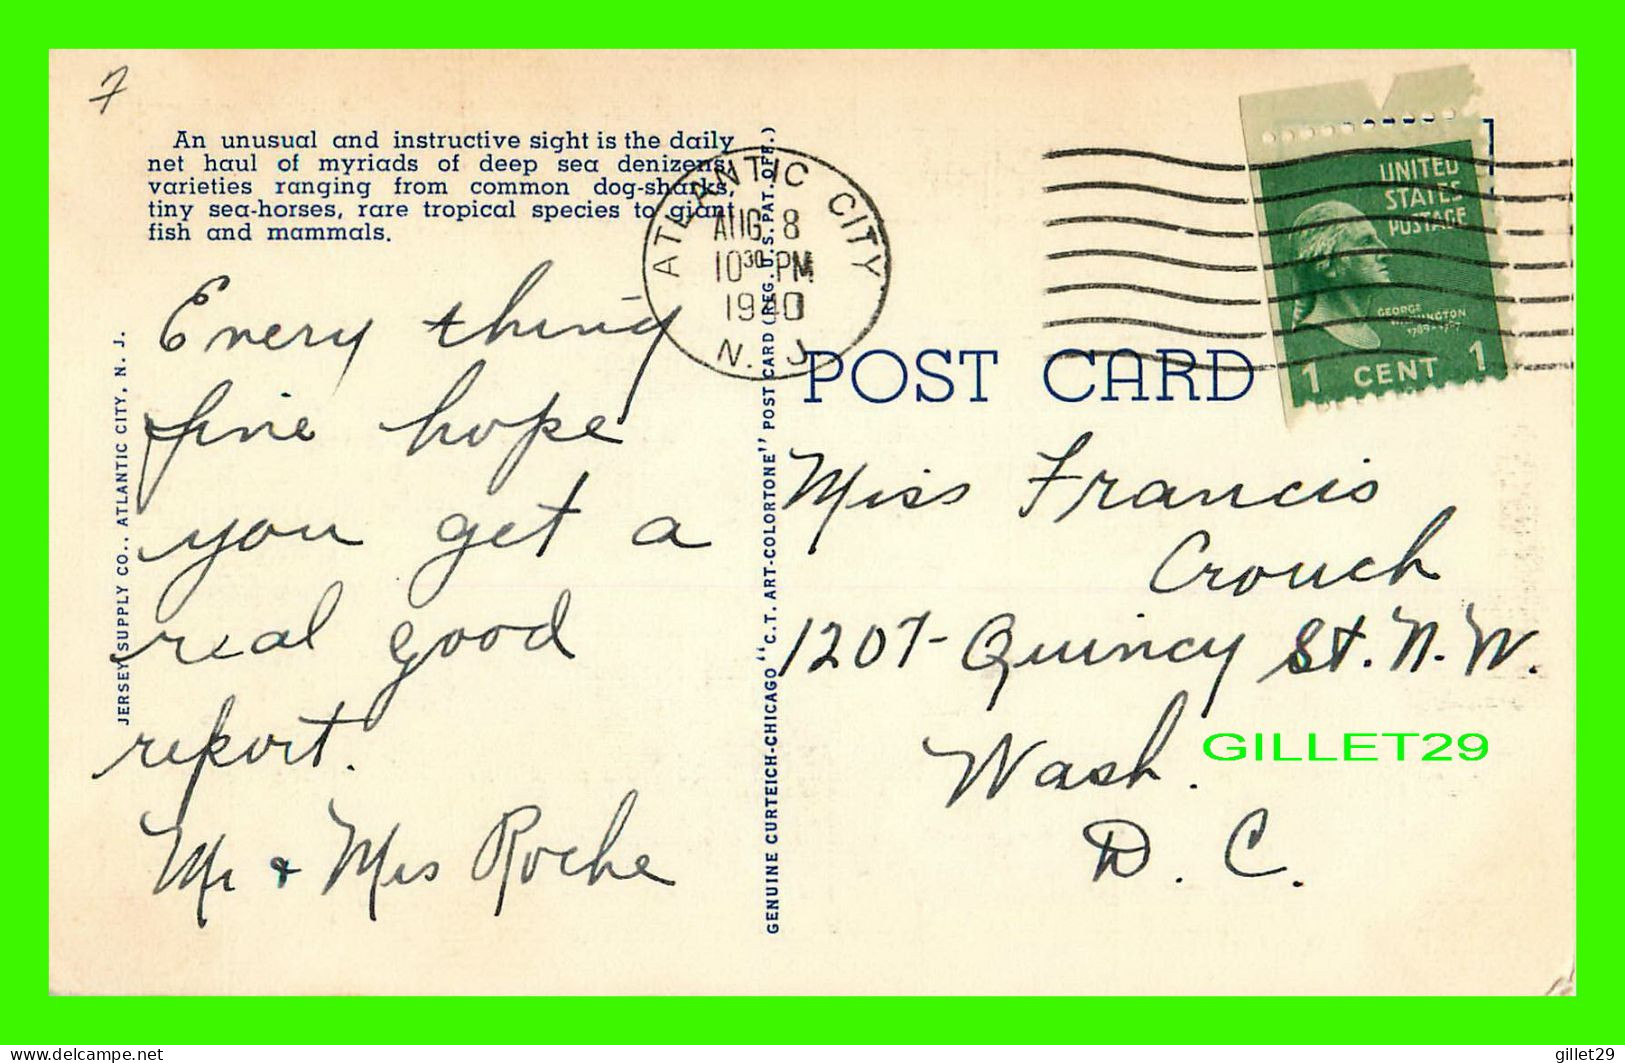 7
An unusual and instructive sight is the daily
net haul of myriads of deep sea denizens,
varieties ranging from common dog-sharks,
tiny sea-horses, rare tropical species to giant
fish and mammals.
Every thing
fine hope
you get a
real good
report.
Mr & Mrs Roche
JERSEY SUPPLY CO., ATLANTIC CITY, N. J.
GENUINE CURTEICH-CHICAGO "C.T. ART-COLORTONE" POST CARD (REG. U.S. PAT. OFF.)
ATLANTIC CITY
AUG 8
10 30 PM
1940
N. J.
POST CARD
UNITED
STATES
POSTAGE
GEORGE
WASHINGTON
1789-1797
1 CENT 1
Miss Francis
Crouch
1207- Quincy St. N. W.
Wash.
D. C.
GILLET29
delcampe.net
gillet29